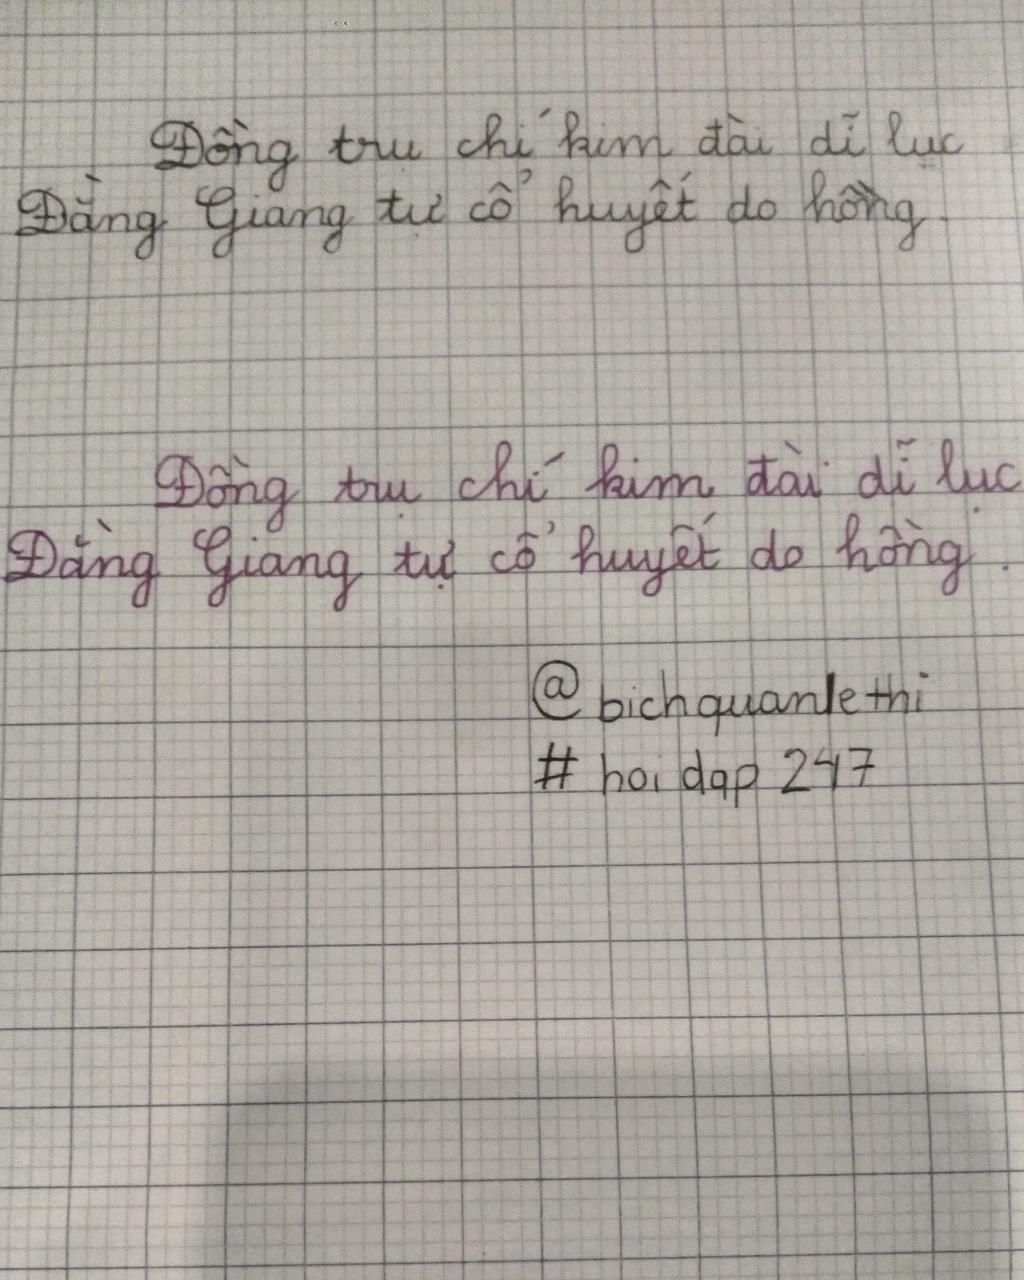 Đồng trụ chí kim đài dĩ lục
Đằng Giang tự cổ huyết do hồng
Đồng trụ chí kim đài dĩ lục
Đằng Giang tự cổ huyết do hồng.
@bichquanlethi
# hoi dap 247